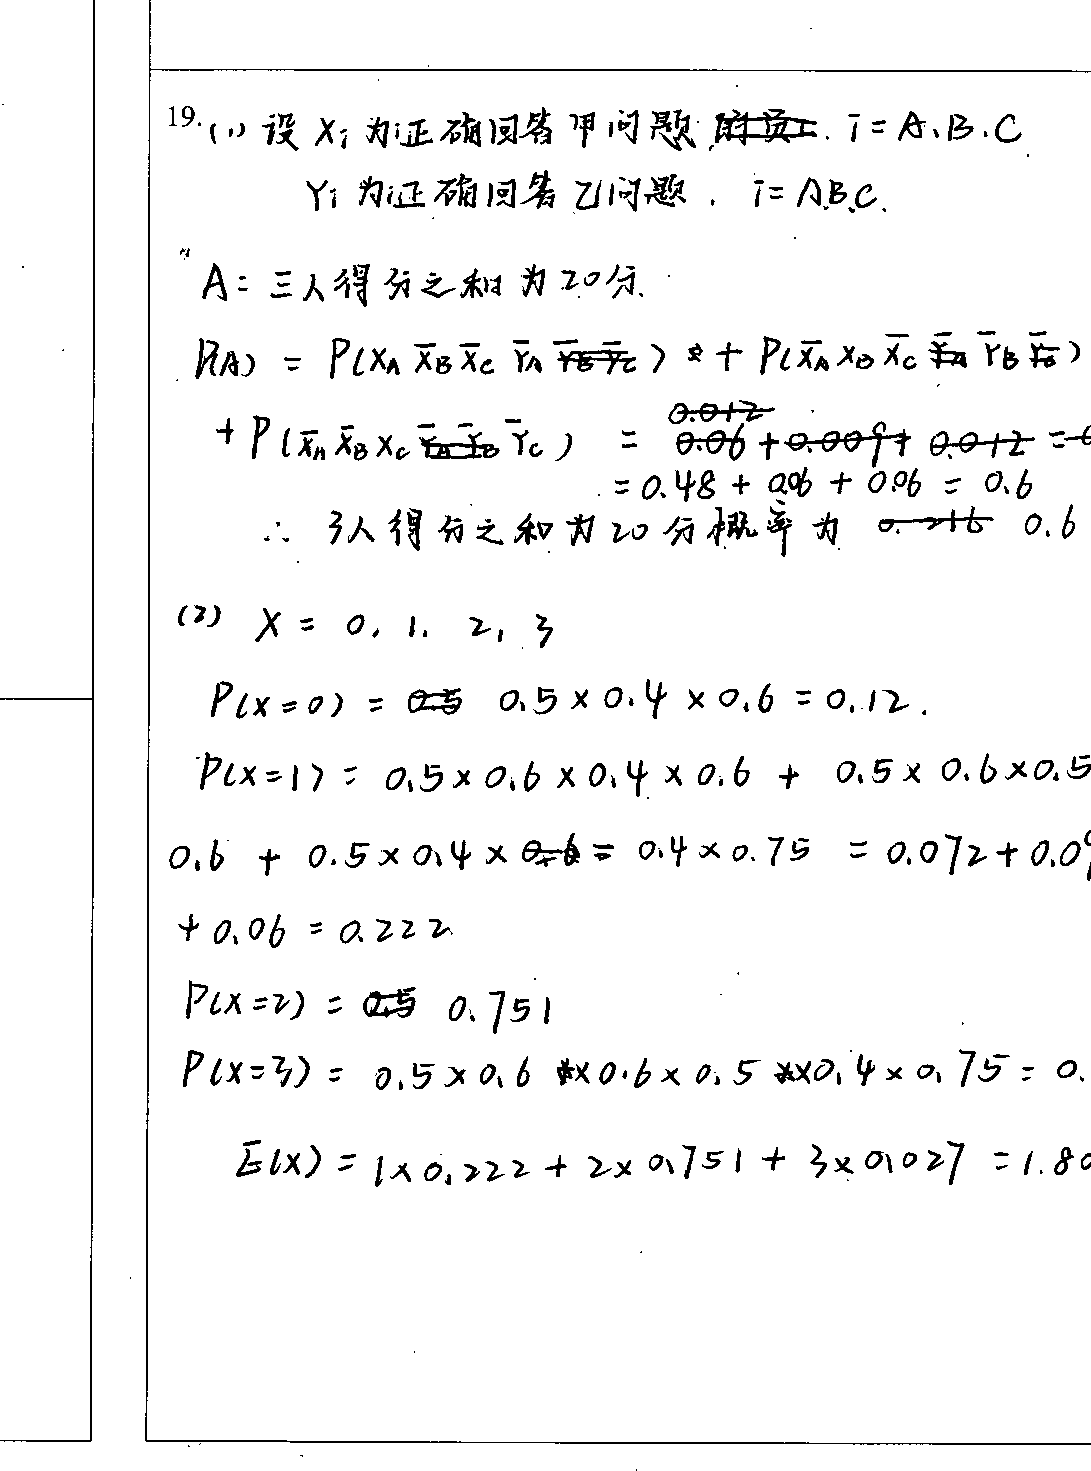 19. (1) 设 Xi 为正确回答甲问题. i = A、B、C
Yi 为正确回答乙问题. i = A,B,C.
A = 三人得分之和为20分.
P(A) = P(X_A X̄_B X̄_C Ȳ_A) + P(X̄_A X_B X̄_C Ȳ_B)
+ P(X̄_A X̄_B X_C Ȳ_C) =
= 0.48 + 0.06 + 0.06 = 0.6
∴ 3人得分之和为20分概率为 0.6
(2) X = 0, 1, 2, 3
P(X=0) = 0.5 × 0.4 × 0.6 = 0.12.
P(X=1) = 0.5 × 0.6 × 0.4 × 0.6 + 0.5 × 0.6 × 0.5
0.6 + 0.5 × 0.4 × 0.4 × 0.75 = 0.072 + 0.09
+ 0.06 = 0.222
P(X=2) = 0.751
P(X=3) = 0.5 × 0.6 × 0.6 × 0.5 × 0.4 × 0.75 = 0.
E(X) = 1 × 0.222 + 2 × 0.751 + 3 × 0.027 = 1.80